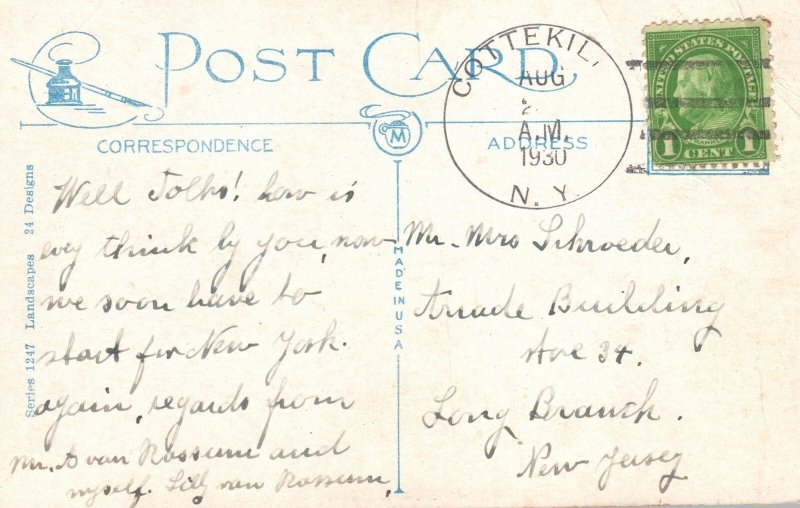 POST CARD
CORRESPONDENCE
ADDRESS
M
COTTEKIL,
AUG
A.M.
1930
N. Y.
UNITED STATES POSTAGE
FRANKLIN
1 CENT 1
Series 1247 Landscapes 24 Designs
MADE IN USA
Well Folks! how is
evy think by you, now
we soon have to
start for New York.
again, regards from
Mr. A van Rossum and
myself. Lilly van Rossum,
Mr. Mrs Schroeder,
Arcade Building
Ave 34.
Long Branch.
New Jersey